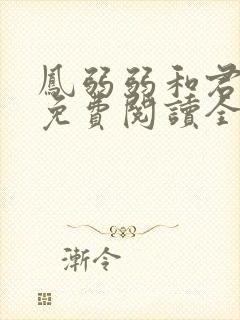 鳳弱弱和君
免費閱讀全
漸令